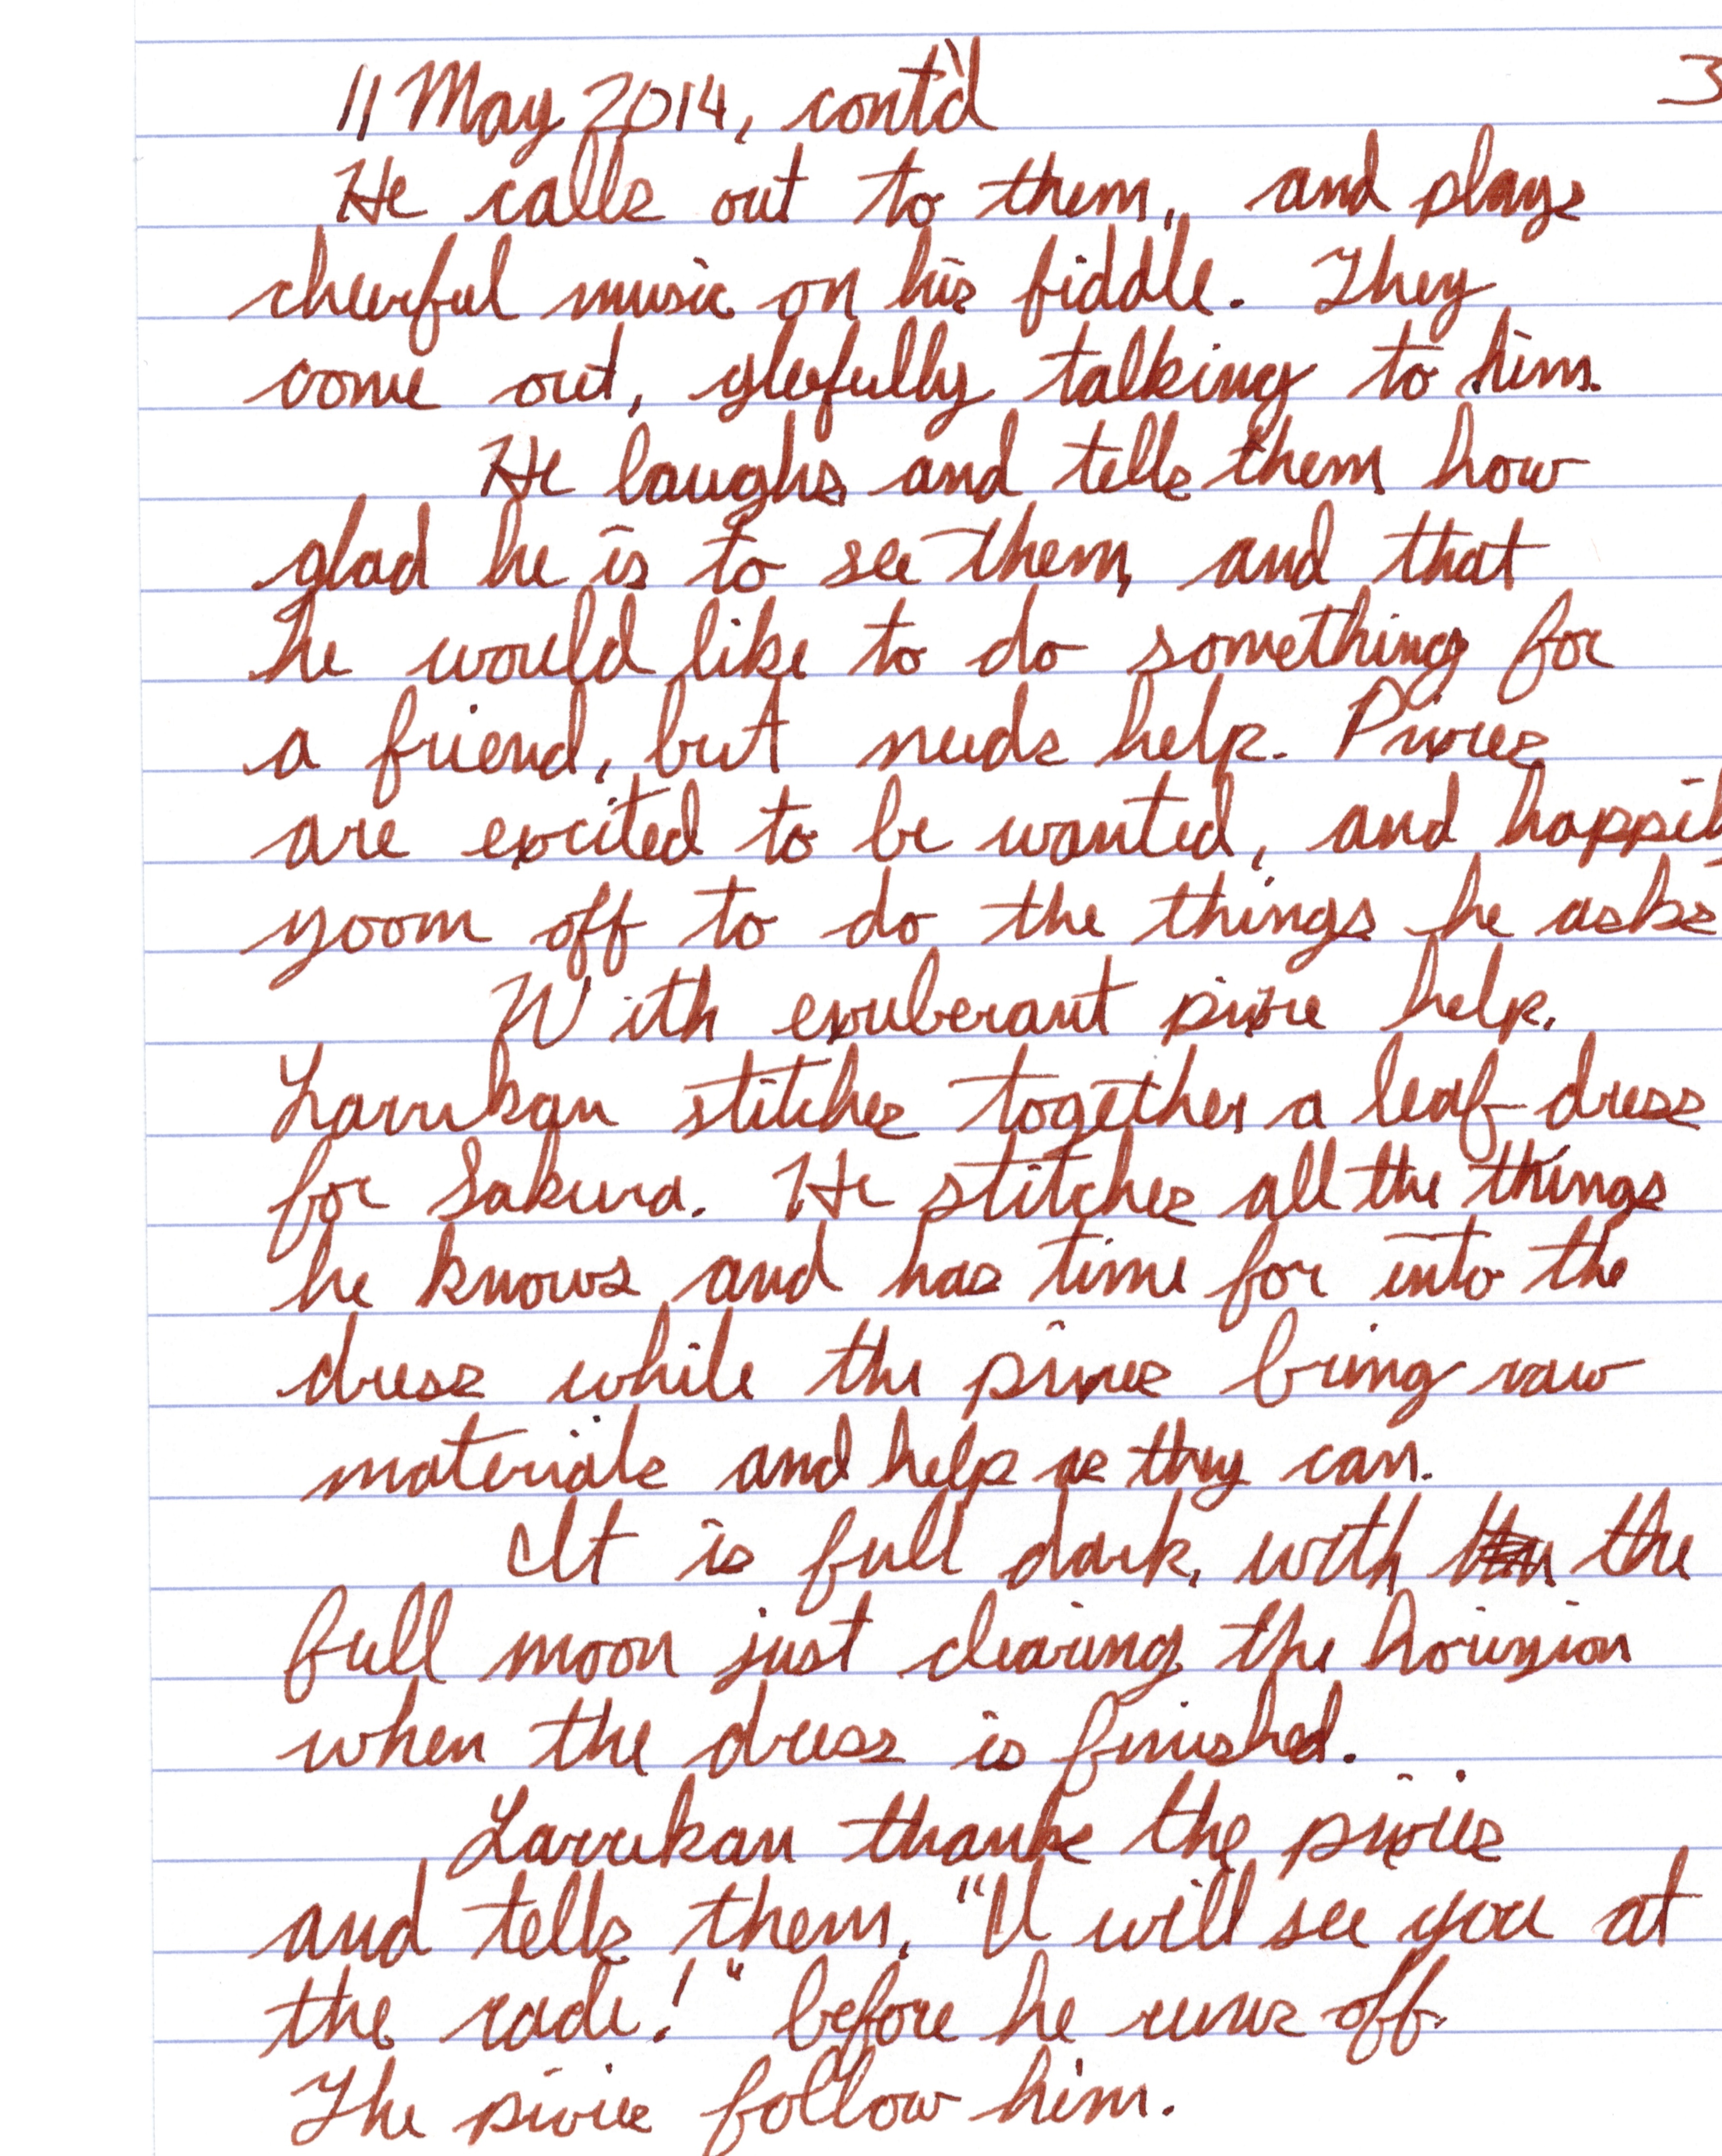 11 May 2014, cont'd 3
He calls out to them, and plays
cheerful music on his fiddle. They
come out, gleefully talking to him.
He laughs and tells them how
glad he is to see them, and that
he would like to do something for
a friend, but needs help. Pixies
are excited to be wanted, and happily
zoom off to do the things he asks
With exuberant pixie help,
Larrikan stitches together a leaf dress
for Sakura. He stitches all the things
he knows and has time for into the
dress while the pixies bring raw
materials and help as they can.
It is full dark, with the
full moon just clearing the horizion
when the dress is finished.
Larrikan thanks the pixies
and tells them, "I will see you at
the rade!" before he runs off.
The pixies follow him.